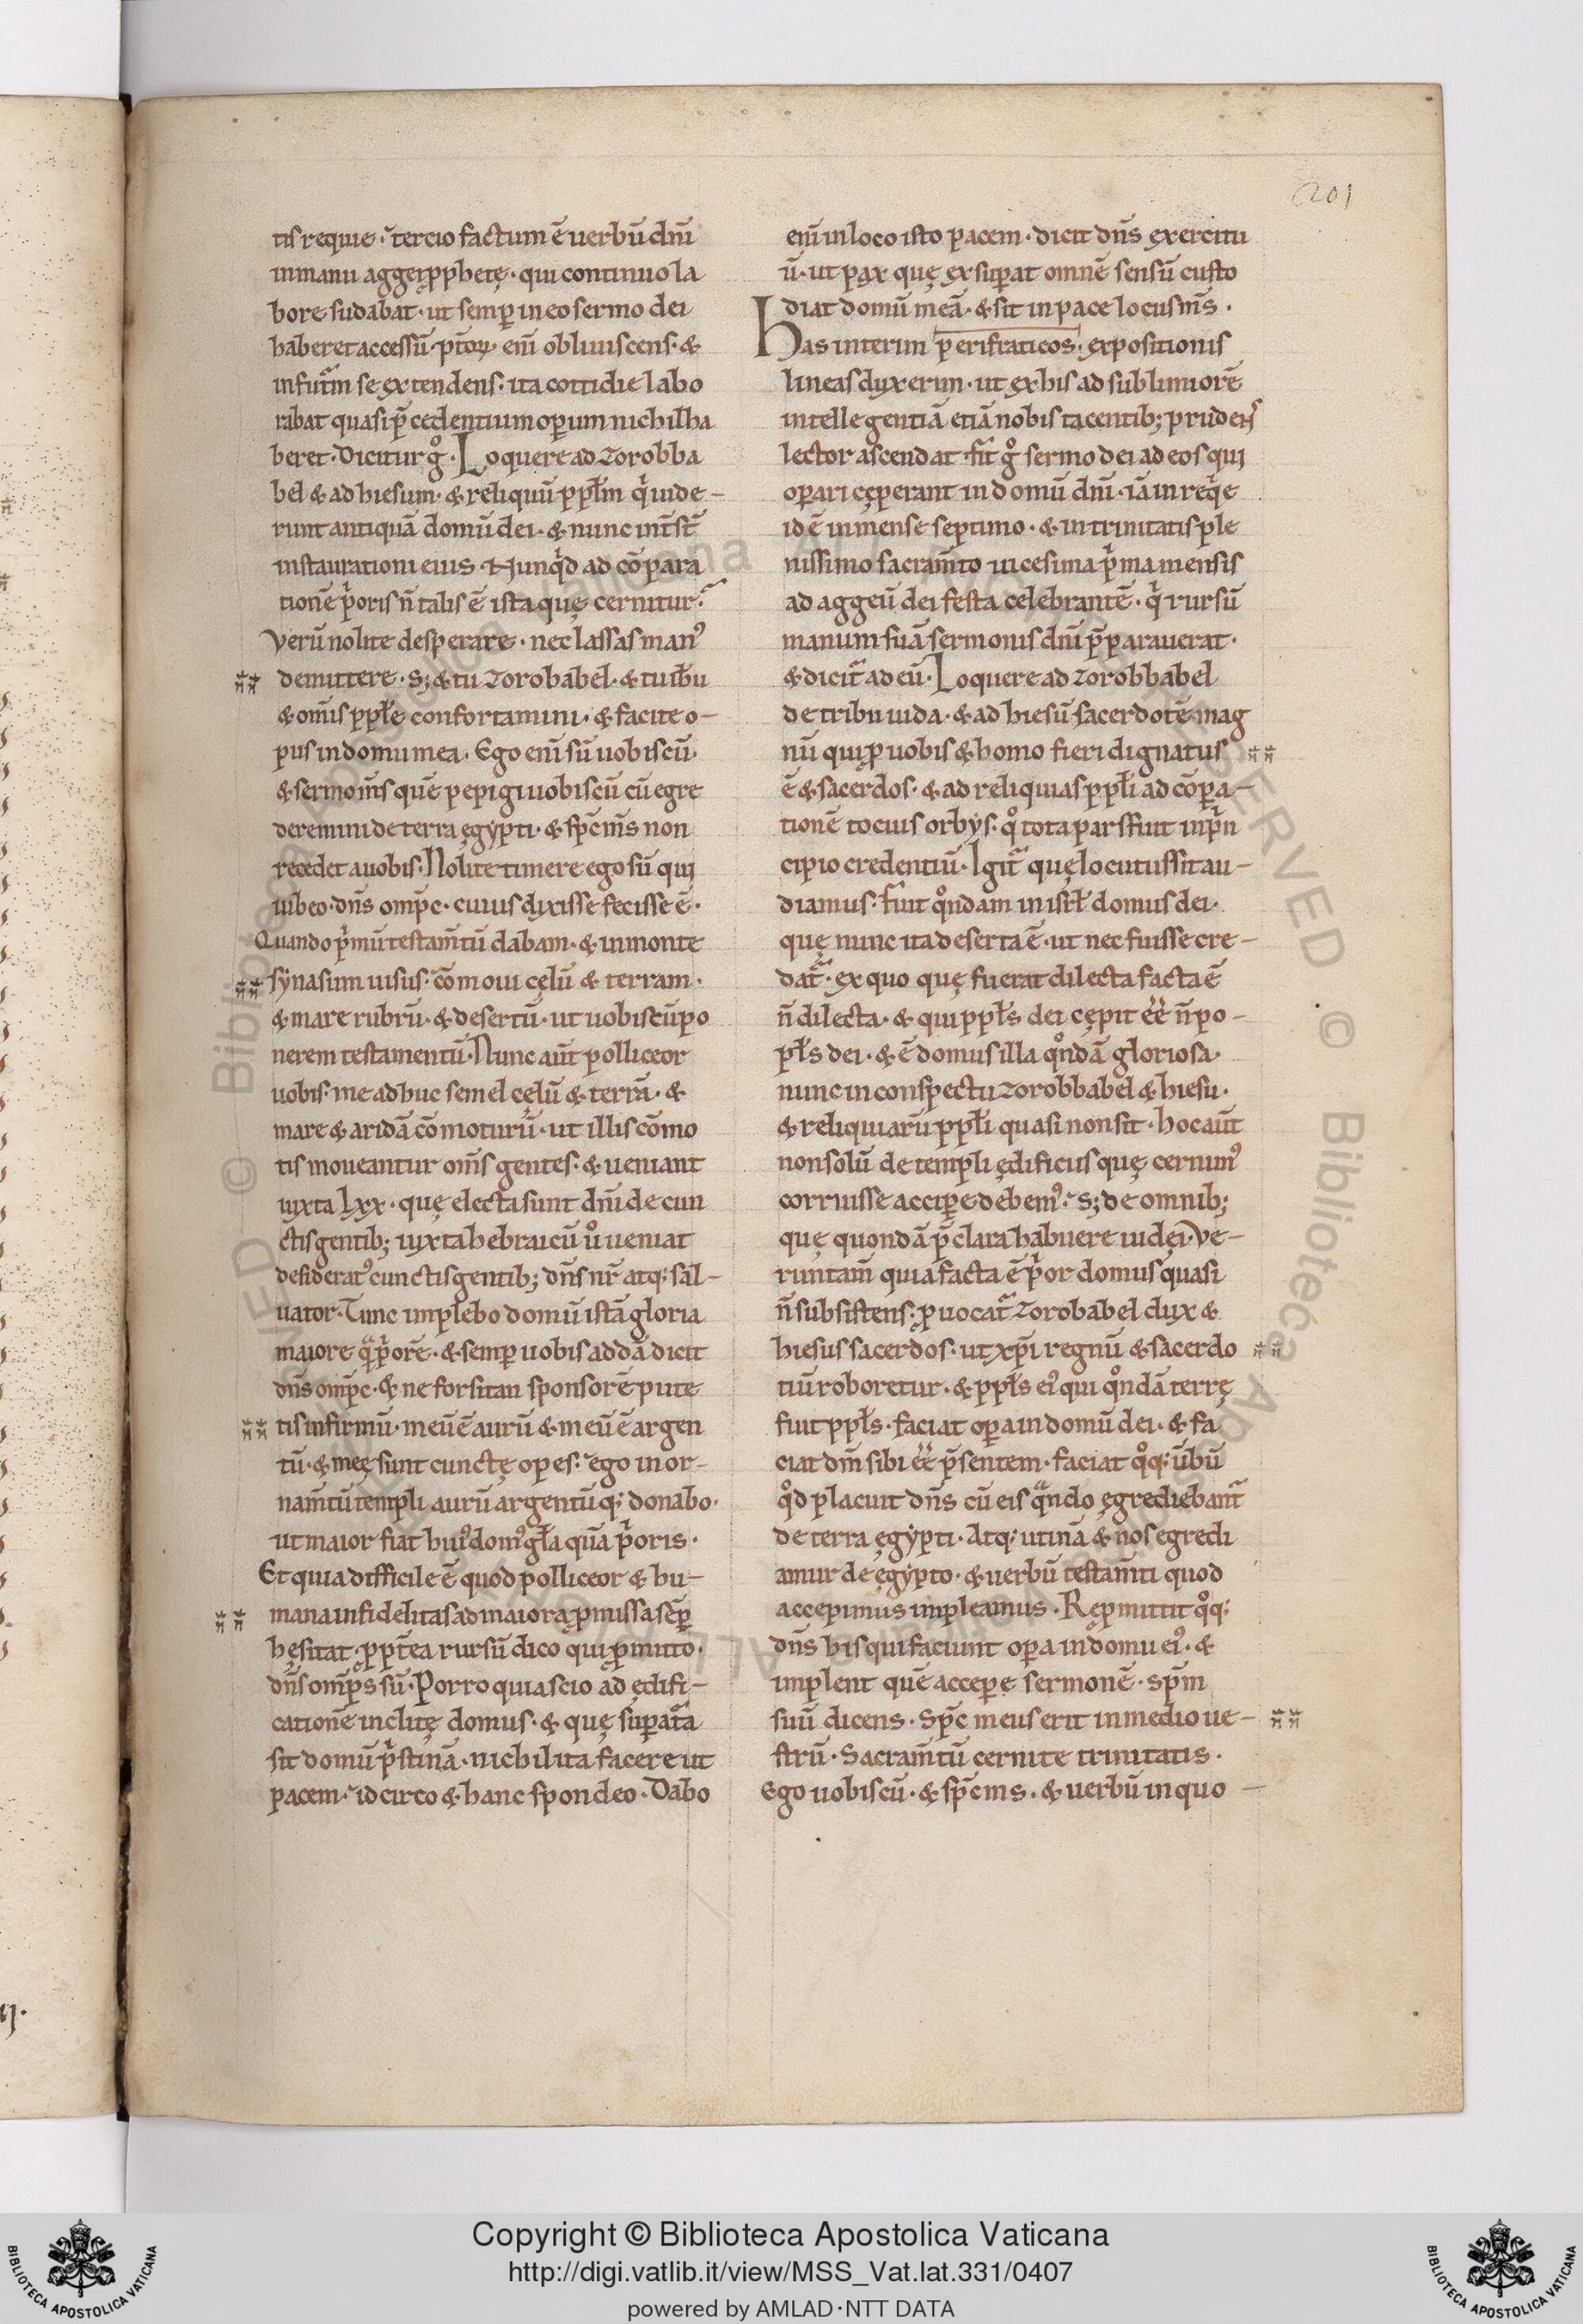 201
tis requie· tercio factum ē uerbū dn̄i
in manu aggei pphetę· qui continuo la
bore sudabat· ut semp̱ in eo sermo dei
haberet accessū· p̄toꝝ eni̅ obliuiscens· &
in fut̄m se extendens· ita cottidie labo
rabat quasi p̄cedentium op̱um nichil ha
beret· Dicitur gͦ· Loquere ad Zorobba
bel & ad hiesum· & reliquū ppłm qͥ uide-
runt antiquā domū dei· & nunc int̄ st̄
instaurationi eius Nunqͥd ad cōpara
tionē pͥoris n̄ talis ē ista quę cernitur·
Verū nolite desperare· nec lassas manꝰ
demittere· S; & tu Zorobabel· & tu ihu
& om̄is ppłe confortamini· & facite o-
pus in domu mea· Ego eni̅ sū uobiscū·
& sermo m̄s quē pepigi uobiscū cū egre
deremini de terra ęgẏpti· & sp̄c m̄s non
recedet a uobis· Nolite timere ego sū qui
iubeo· dn̄s omp̄c· cuius dixisse fecisse ē·
Quando pͥmū testam̄tū dabam· & in monte
sẏna sum uisus· cōmoui cęlū & terram·
& mare rubrū· & desertū· ut uobiscū po
nerem testamentū· Nunc aūt polliceor
uobis· me adhuc semel cęlū & terrā· &
mare & aridā cōmoturū· ut illis cōmo
tis moueantur om̄s gentes· & ueniant
iuxta lxx· quę electa sunt dn̄i de cun
ctis gentib; iuxta hebraicū u̇ͦ ueniat
desideratꝰ cunctis gentib; dn̄s nr̄ atq; sal-
uator· Tunc implebo domū istā gloria
maiore qͣ pͥorē· & semp̱ uobis addā dicit
dn̄s omp̄c· & ne forsitan sponsorē pute
tis infirmū· meū ē aurū & meū ē argen
tū· & meę sunt cunctę opes· ego in or-
nam̄tū templi aurū argentūq; donabo·
ut maior fiat huiꝰ domꝰ gła quā pͥoris·
Et quia difficile ē quod polliceor & hu-
mana infidelitas ad maiora p̱missa sēp̱
hęsitat· ppt̄ea rursū dico qui p̱mitto·
dn̄s omp̄s sū· Porro quia scio ad ędifi-
cationē inclitę domus· & quę sup̱atͣa
sit domū pͥstinā· nichil ita facere ut
pacem· idcirco & hanc spondeo· Dabo
eni̅ in loco isto pacem· dicit dn̄s exercitu
ū· ut pax quę exsup̱at omnē sensū custo
diat domū meā· & sit in pace locus m̄s·
Has interim perifraticos· expositionis
lineas duxerim· ut ex his ad sublimiorē
intellegentiā etiā nobis tacentib; prudens
lector ascendat· fit̄ gͦ sermo dei ad eos qui
op̱ari cęperant in domū dn̄i· iā in reqͥe
id ē in mense septimo· & in trinitatis ple
nissimo sacram̄to uicesima pͥma mensis
ad aggeū dei festa celebrantē· qͥ rursū
manum suā sermonis dn̄i p̄parauerat·
& dicit̄ ad eū· Loquere ad Zorobbabel
de tribu iuda· & ad hiesū sacerdotē mag
nū qui p̱ uobis & homo fieri dignatus
ē & sacerdos· & ad reliquias ppłi ad cōp̱a-
tionē tocius orbis· qͦ tota pars fuit in pͥn
cipio credentiū· Igit̄ quę locutus sit au-
diamus· fuit qͦndam in isrł domus dei·
quę nunc ita deserta ē· ut nec fuisse cre-
dat̄· ex quo quę fuerat dilecta facta ē
n̄ dilecta· & qui ppłs dei cępit ēē n̄ po-
płs dei· & ē domus illa qͦndā gloriosa·
nunc in conspectu Zorobbabel & hiesu·
& reliquiarū ppłi quasi non sit· hoc aūt
non solū de templi ędificiis quę cernimꝰ
corruisse accip̱e debemꝰ· S; de omnib;
quę quondā p̄clara habuere iudęi· Ve-
runtam̄ quia facta ē pͥor domus quasi
n̄ subsistens· p̱uocat̄ Zorobabel dux &
hiesus sacerdos· ut xp̄i regnū & sacerdo
tiū roboretur· & ppłs eiꝰ qui qͦndā terrę
fuit ppłs· faciat op̱a in domū dei· & fa
ciat dm̄ sibi ēē p̄sentem· faciat qͦq; ūbū
qͦd placuit dn̄s cū eis qͣndo ęgrediebant̄
de terra ęgẏpti· Atq; utinā & nos egredi
amur de ęgẏpto· & uerbū testam̄ti quod
accepimus impleamus· Repmittit qͦq;
dn̄s his qui faciunt op̱a in domu eiꝰ· &
implent quē accep̱e sermonē· Sp̄m
suū dicens· Sp̄c meus erit in medio ue-
strū· Sacram̄tū cernite trinitatis·
Ego uobiscū· & sp̄c ms· & uerbū in quo-
Copyright © Biblioteca Apostolica Vaticana
http://digi.vatlib.it/view/MSS_Vat.lat.331/0407
powered by AMLAD·NTT DATA
BIBLIOTECA APOSTOLICA VATICANA
BIBLIOTECA APOSTOLICA VATICANA